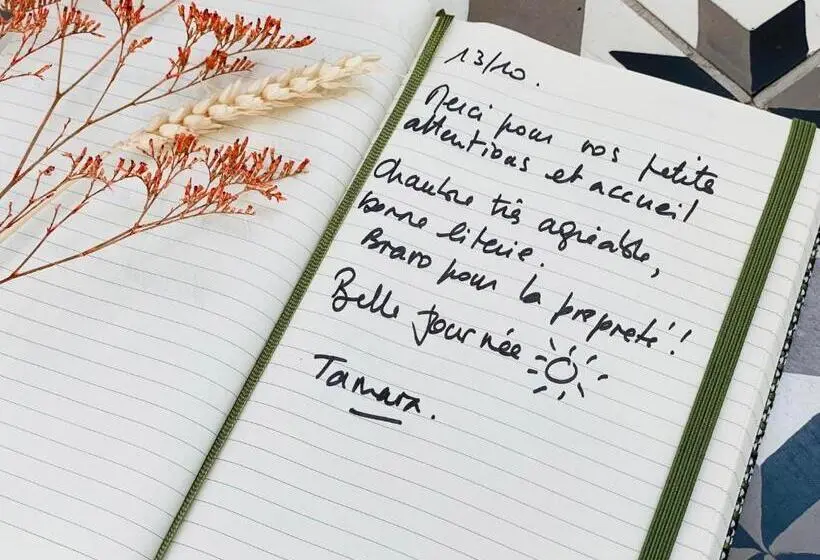 13/10.
Merci pour vos petite
attentions et accueil
Chambre très agréable,
bonne literie.
Bravo pour la propreté !!
Belle journée
Tamara.